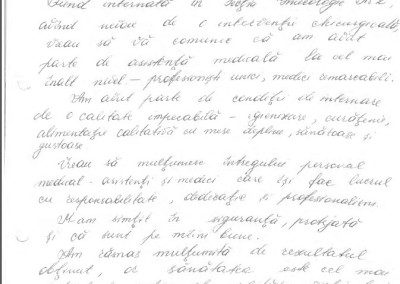 Fiind internată în secția Ginecologie Nr 2,
având nevoie de o intervenție chirurgicală,
vreau să vă comunic că am avut
parte de asistență medicală la cel mai
înalt nivel – profesioniști unici, medici remarcabili.
Am avut parte de condiții de internare
de o calitate impecabilă – igienizare, curățenie,
alimentație calitativă cu mese depline, sănătoase și
gustoase.
Vreau să mulțumesc întregului personal
medical – asistenți și medici care își fac lucrul
cu responsabilitate, dedicație și profesionalism.
M-am simțit în siguranță, protejată
și că sunt pe mâini bune.
Am rămas mulțumită de rezultatul
obținut, or sănătatea este cel mai